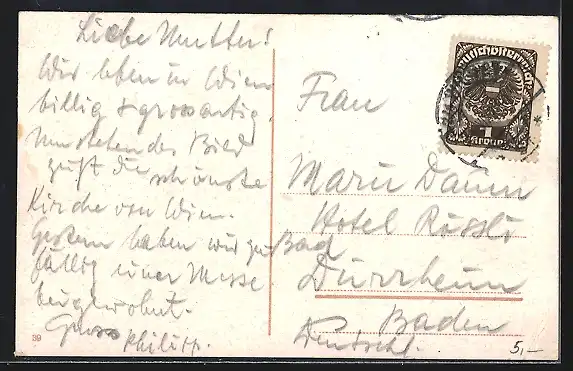 Liebe Mutter!
Wir leben in Wien
billig & grossartig.
Umstehendes Bild
zeigt die schönste
Kirche von Wien.
Gestern haben wir zu-
fällig einer Messe
beigewohnt.
Gruss
Philipp.
39
Deutschösterreich
1
Krone
Frau
Marie Daum
Hotel Rössle
Bad
Dürrheim
Baden
Deutschl.
5,-